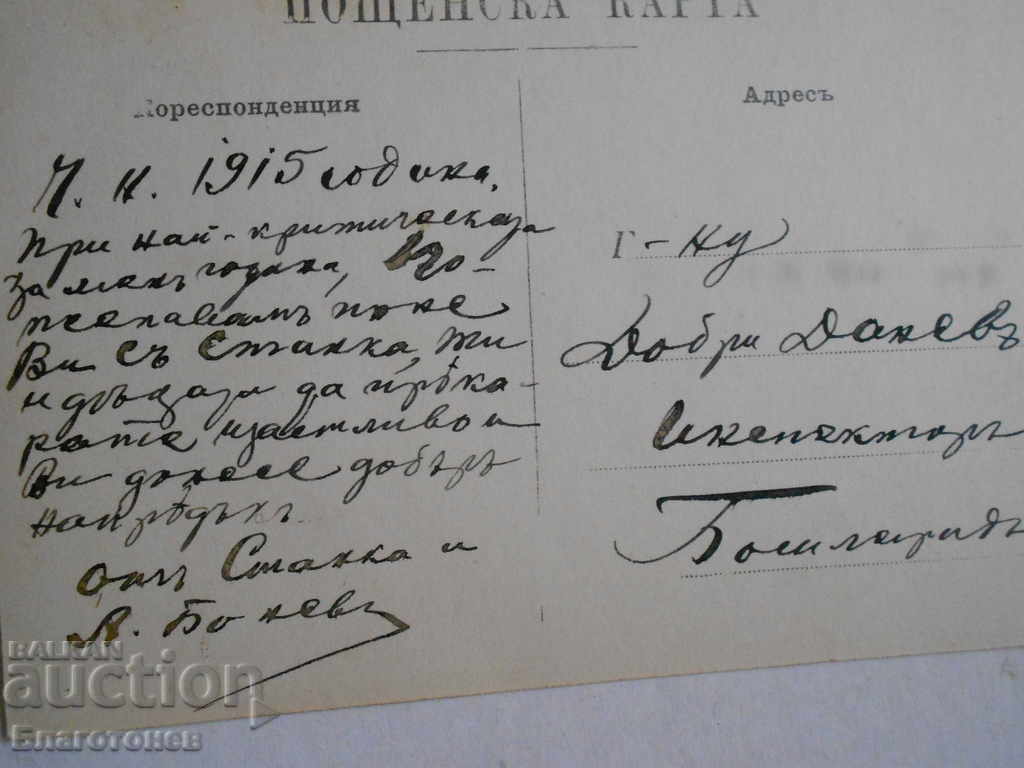 ПОЩЕНСКА КАРТА
Кореспонденция
Адресъ
1915 година.
При най-критическата
за менъ година, По-
Ви съ Станка,
да прѣка-
рате щастливо и
Ви донесе добъръ
напрѣдъкъ
отъ Станка и
Л. Боневъ
Г-ну
Добри Даневъ
Инспекторъ
Босилеградъ
BALKAN
auction
Благотонев